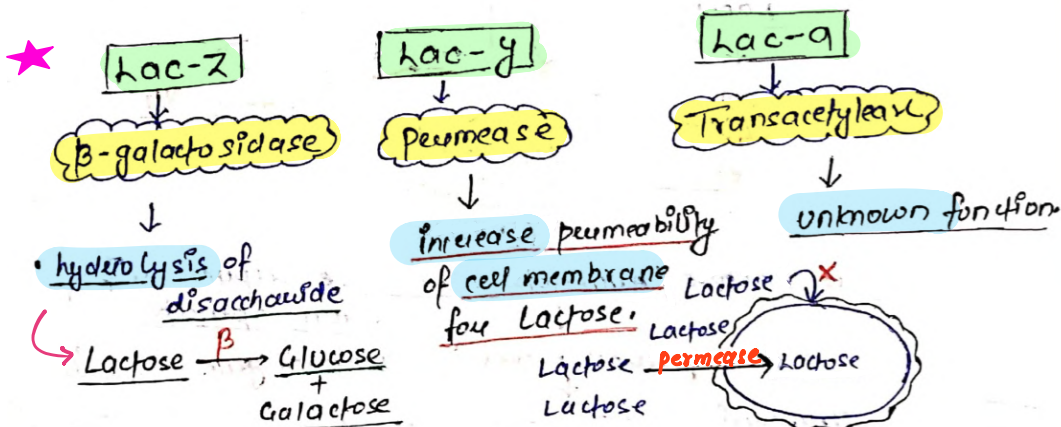 Lac-Z
β-galactosidase
• hydrolysis of
disaccharide
Lactose β → Glucose
+
Galactose
Lac-y
Permease
increase permeability
of cell membrane
for Lactose.
Lac-a
Transacetylease
unknown function.
Lactose X
Lactose
Lactose permease → Lactose
Lactose